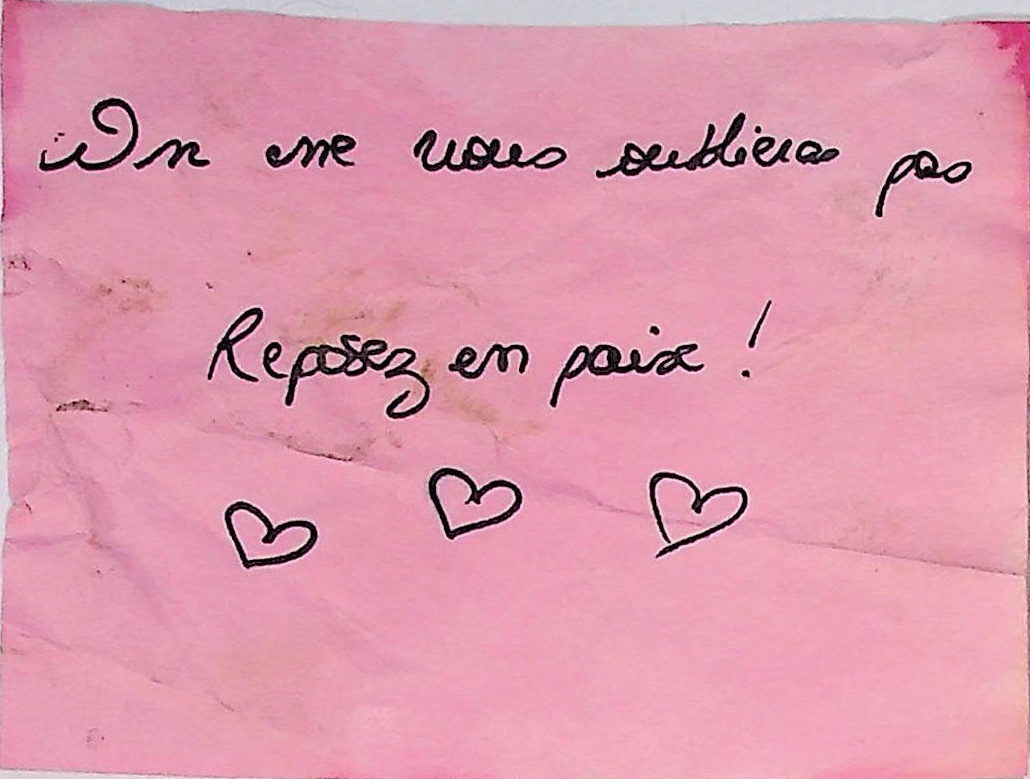 On ne vous oubliera pas
Reposez en paix !